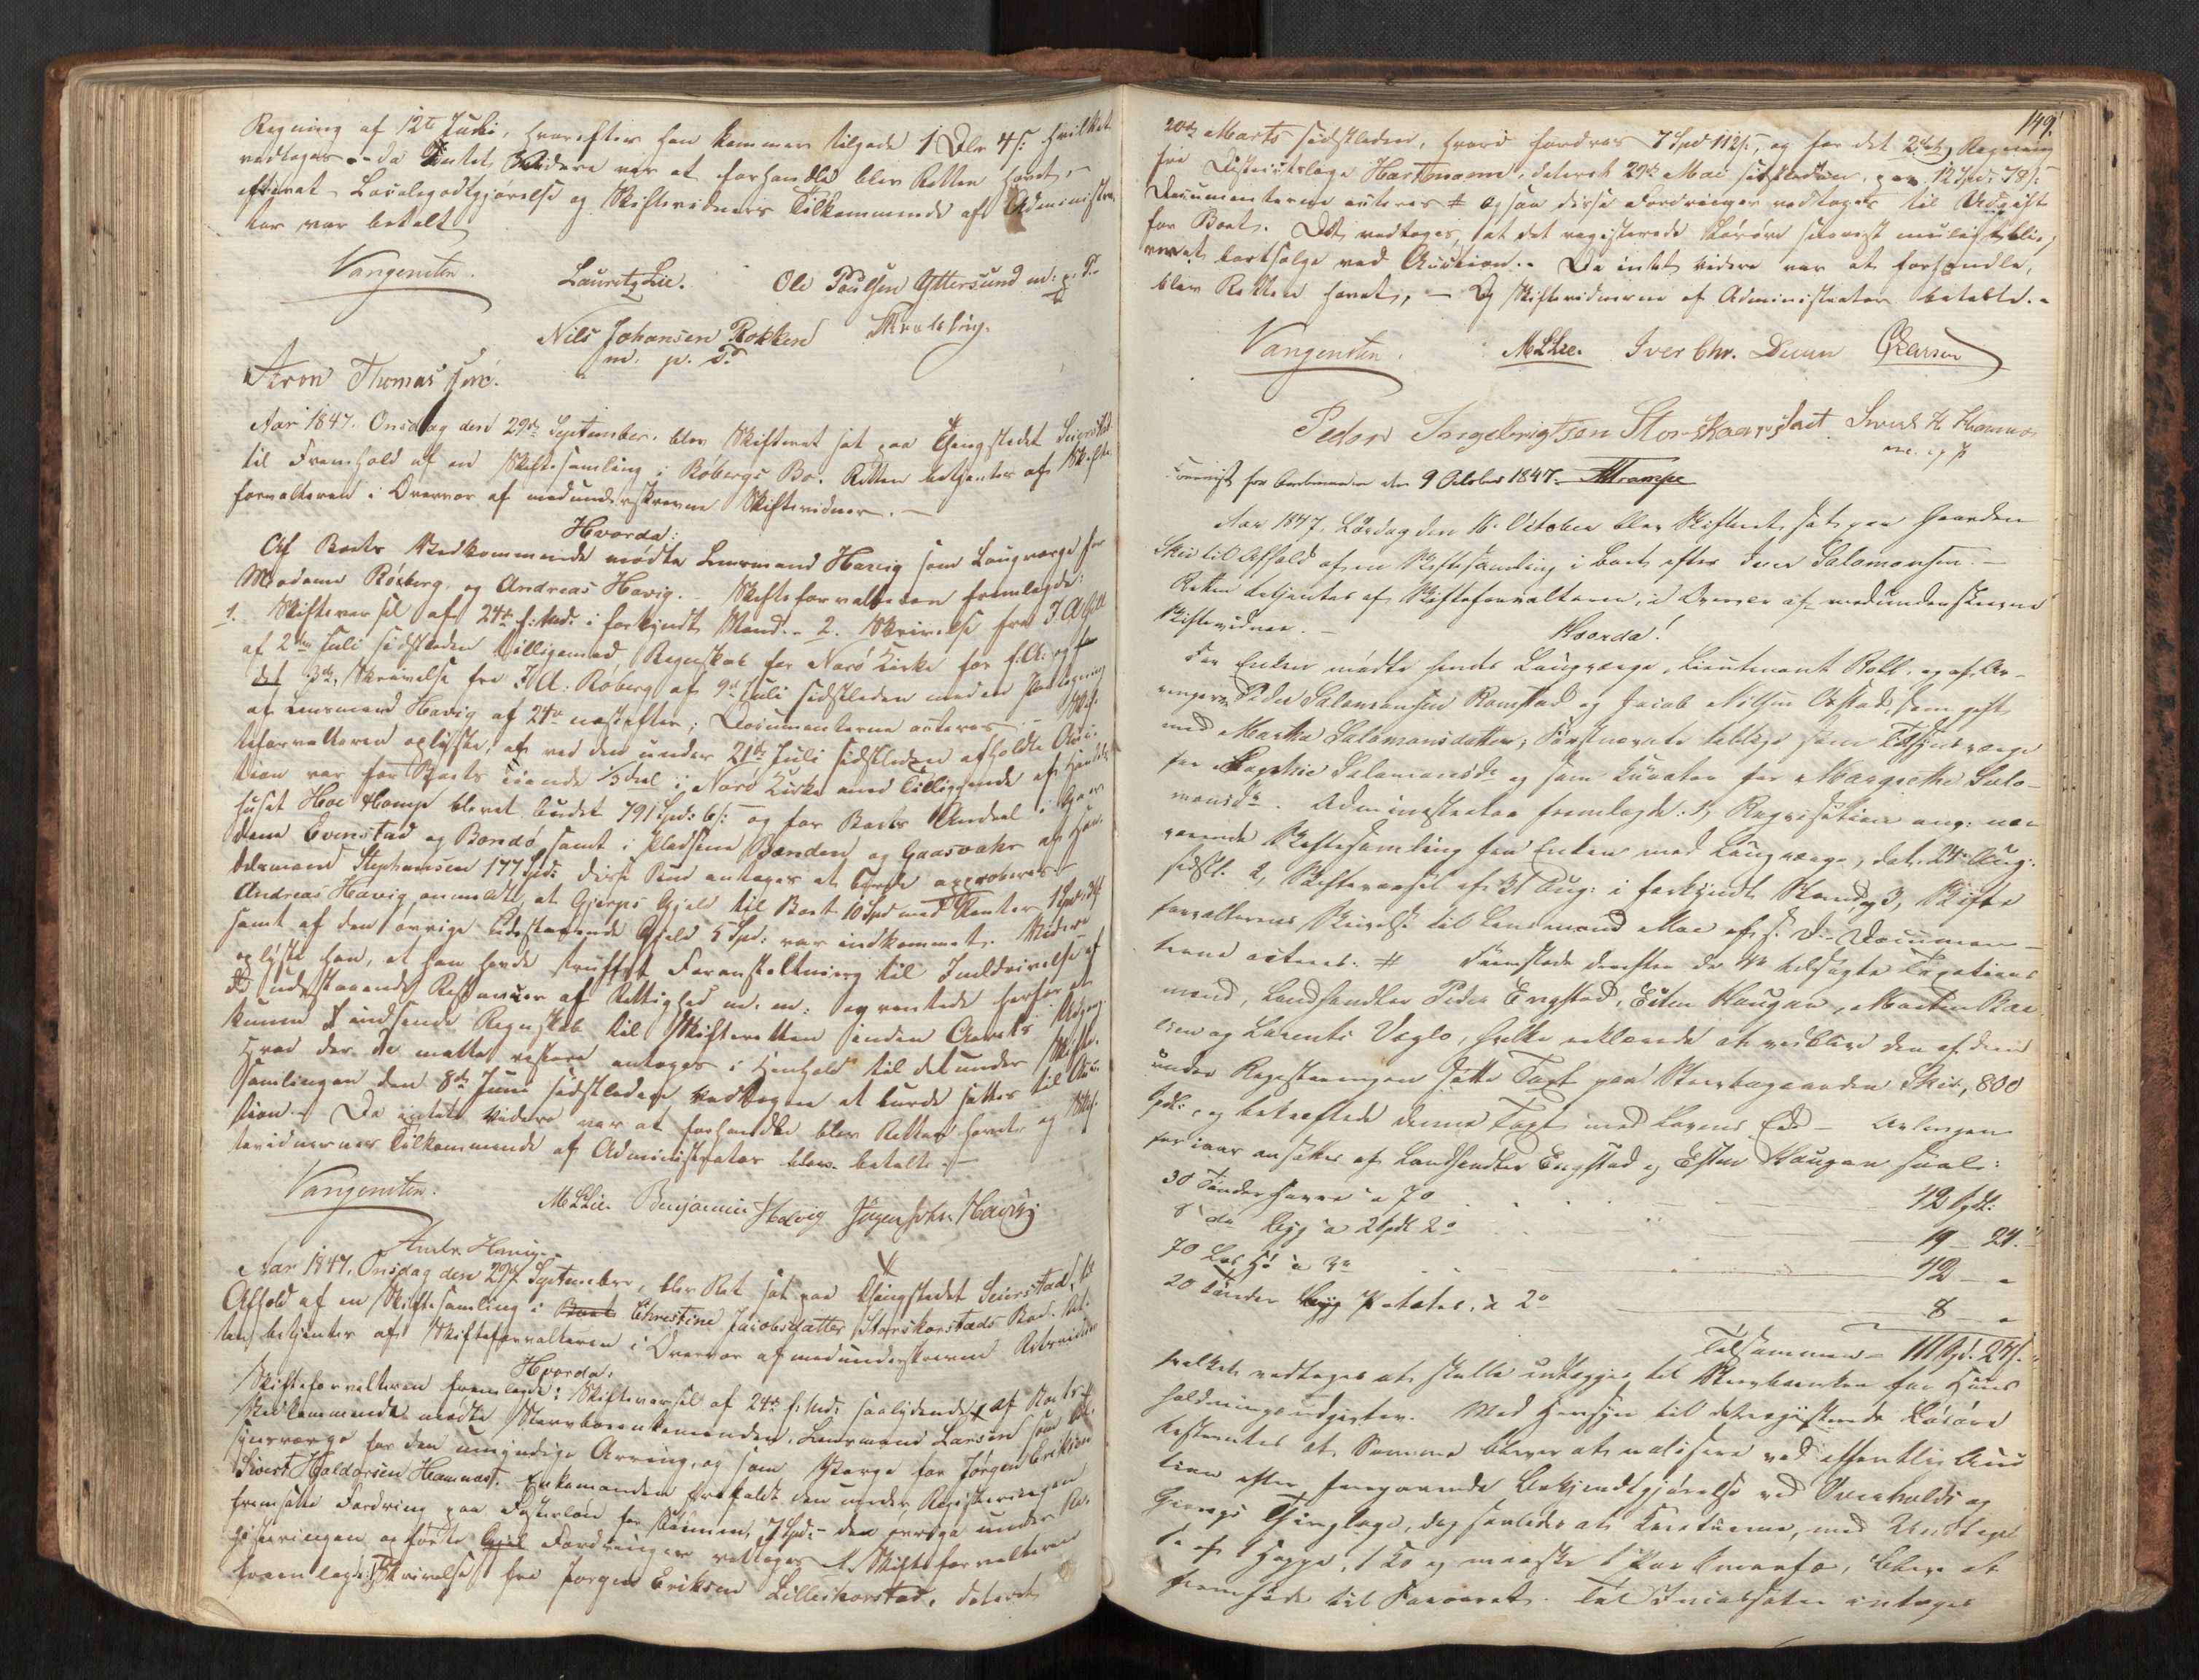 Regning af 12te Juli, hvorefter han kommer tilgode 1 Dlr 4 s: hvilket
vedtoges. - Da Intet Videre var at forhandle blev Retten hævet,
efterat Localegodtgjørelse og Skiftevidners Tilkommende af Administra-
tor var betalt
Vangensten. Lauritz Lie. Ole Poulsen Yttersund m: p. P.
Nils Johansen Rokken
m: p. P.
Aron Thomas sen.
Aar 1847. Onsdag den 29de September. blev Skifteret sat paa Thingstedet Seierstad
til Fremhold af en Skiftesamling i Røbergs Bo. Retten betjentes af Skifte
forvalteren i Overvær af medunderskrevne Skiftevidner. -
Hvorda:
Af Boets Vedkommende mødte Lensmand Havig som Laugværge for
Madame Røberg og Andreas Havig. - Skifteforvalteren fremlagde:
1. Skiftevarsel af 24de f: Md: i forkyndt Stand. - 2. Skrivelse fra
af 2den Juli sidstleden tilligemed Regnskab for Nærø Kirke for f: A: og
det 3die, Skrivelse fra J A: Røberg af 9de Juli sidstleden med en Paategning
af Lensmand Havig af 24de næstefter; Documenterne acteres - Skif-
teforvalteren oplyste, at ved den under 21de Juli sidstleden afholdte Auc-
tion var for Boets eiende 1/3 Deel i Nærø Kirke med Tilliggende af Handels
huset Hoe & Comp blevet budet 791 Spd: 6 s: og for Boets Andeel i Gaar-
dene Evenstad og Bondø samt i Pladsene Sanden og Gaasvahr af Han-
delsmand Stephansen 177 Spd: disse Bud antoges at burde approberes -
Andreas Havig anmeldte, at Gjerps Gjeld til Boet 10 Spd med Renter
samt af den øvrige Udestaaende Gjeld 5 Spd: var indkommet. Videre
oplyste han, at han havde truffet Foranstaltning til Inddrivelse af
de udestaaende Restancer af Rettighed m. m: og ventede herfor at
kunne indsende Regnskab til Skifteretten inden Aarets Udgang.
Hvad der da maatte restere antoges i Henhold til det under Skifte-
Samlingen den 8de Juni sidstleden Vedtagne at burde sættes til Auc-
tion. - Da intet videre var at forhandle blev Retten hævet og Skif-
tevidnernes Tilkommende af Administrator blev betalte. -
Vangensten. M L Lie. Benjamin Havig Jørgen Johns: Havig
Andr. Havig.
Aar 1847. Onsdag den 29de September, blev Ret sat paa Thingstedet Seierstad, til
Afhold af en Skiftesamling i Boet Christine Jacobsdatter Storskorstads Bo. Ret-
ten betjentes af Skifteforvalteren i Overvær af medunderskrevne Retsvidner
Hvorda:
Skifteforvalteren fremlagde: Skiftevarsel af 24de f: Md: saalydende # Af Boets
Vedkommende mødte Stervboenkemanden, Lensmand Larsen som Til-
synsværge for den umyndige Arving, og som Værge for Jørgen Eriksen
Sivert Haldorsen Hamnøst. Enkemanden frafaldt den under Registreringen
fremsatte Fordring paa Fosterløn for Barnet, 7 Spd: - den øvrige under Re-
gistreringen opførte Gjeld Fordringer vedtoges. Skifteforvalteren
fremlagde: Skrivelse fra Jørgen Eriksen Lilleskorstad, dateret
149.
20de Marts sidstleden, hvori fordres 7 Spd 112 s:, og for det 2det, Regning
fra Districtslæge Hartmann, dateret 29de Mai sidstleden, paa 12 Spd: 78 s:
Documenterne acteres # og saa disse Fordringer vedtoges til Udgift
for Boet. Det vedtoges, at det registrerede Løsøre snarest muligt blev
bortsolgt ved Auction. - Da intet videre var at forhandle,
blev Retten hævet, - Og Skiftevidnerne af Administrator betalte. -
Vangensten. M L Lie. Iver Chr. Duun Larsen
Peder Ingebrigtsen Storskaarstad Sivert H Hamnøs
m. i p
for Aarbemeldte den 9 October 1847. Trampe
Aar 1847. Lördag den 16. October blev Skifteret sat paa Gaarden
Skei til Afhold af en Skiftesamling i Boet efter Iver Salomonsen. -
Retten betjentes af Skifteforvalteren, i Overvær af medunderskrevne
Skiftevidner. - Hvorda!
For Enken mødte hendes Laugværge, Lieutenant Roll, og af Ar-
vingerne Peder Salomonsen Ramstad og Jacob Nilsen Opstad, som gift
med Martha Salomonsdatter; Førstnævnte tillige som Tilsynsværge
for Sophie Salomonsdr og som Curator for Margrethe Salo-
monsdr. Administrator fremlagde: 1, Reqvisition ang: nær-
værende Skiftesamling fra Enken med Laugværge, dat. 24 Aug:
sidstl. 2, Skiftevarsel af 31 Aug: i forkyndt Stand, og 3, Skifte
forvalterens Skrivelse til Lensmand Moe af s. D. - Documen-
terne acteres. # Fremstode derefter de 4re tilsagte Taxations
mænd, Landhandler Peder Engstad, Esten Haugan, Morten Bar-
lien og Larents Veglo, hvilke erklærede at vedblive den af dem
under Registreringen satte Taxt paa Stervbogaarden Skei, 800
Spdl:, og bekræftede denne Taxt med Lovens Eed - Avlingen
for iaar ansattes af Landhandler Engstad og Esten Haugan saal:
30 Tønder Havre a 7 o - 42 Spdl:
8 do Byg a 2 Spdl 2 o - 19 - 24. "
70 Læs Hø a 3 o - 42 - "
20 Tønder Byg Potates, a 2 o - 8 - "
Tilsammen - 111 Spd. 24 s. "
hvilket vedtoges at skulle udlægges til Stervboenken for Huus
holdningsudgifter. Med Hensyn til det registrerede Løsøre
bestemtes at Samme bliver at realisere ved offentlig Auc-
tion efter foregaaende Bekjendtgjørelse ved Overhalds og
Grongs Thinglage, dog saaledes at Creaturene, med Undtagel-
se af 1 Hoppe, 1 Ko og maaske 1 Par Smaafæ, bliver at
fremføde til Foraaret. Til Incassator antoges